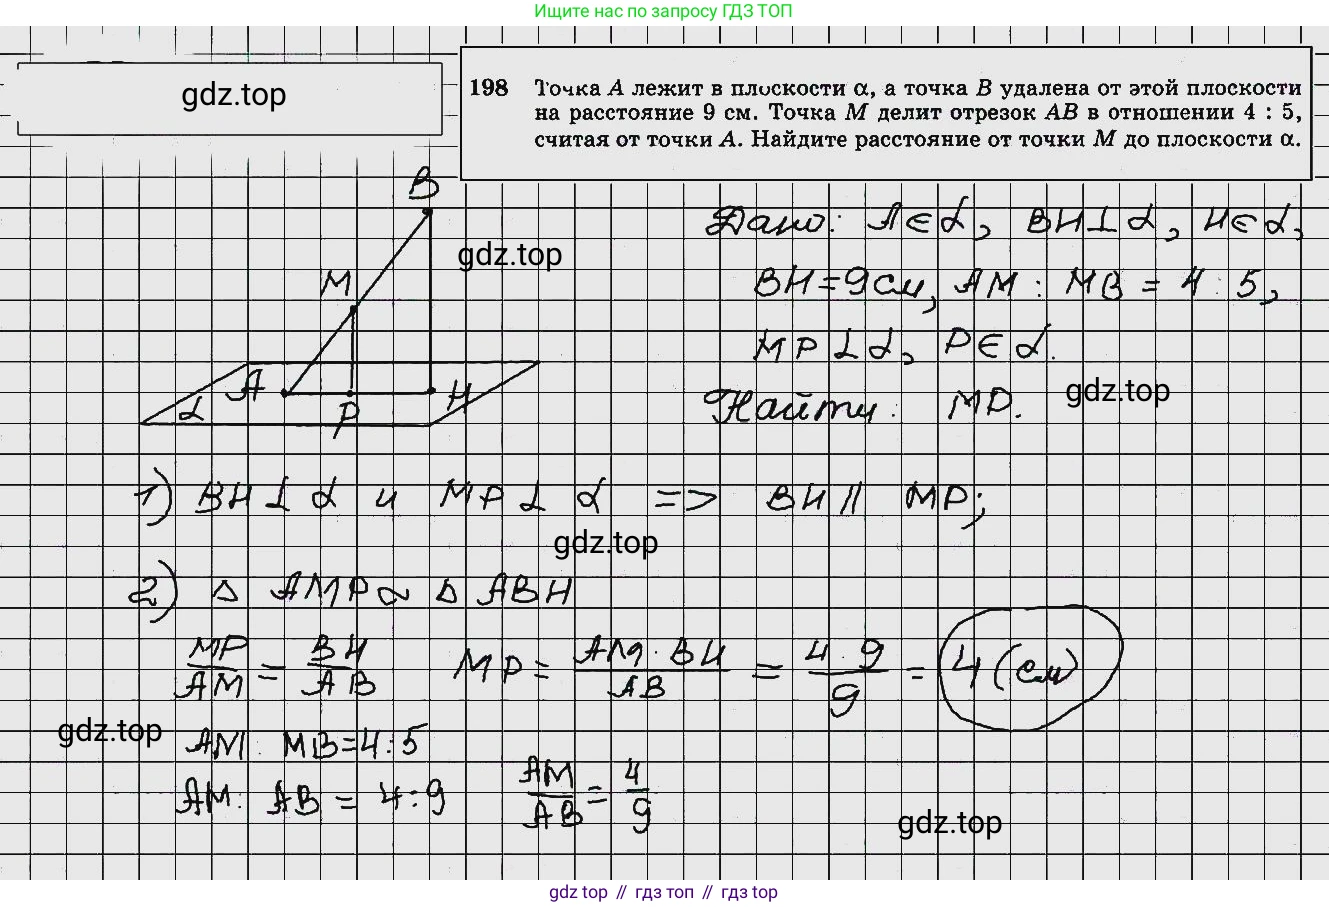 Ищите нас по запросу ГДЗ ТОП
gdz.top
198 Точка A лежит в плоскости α, а точка B удалена от этой плоскости
на расстояние 9 см. Точка M делит отрезок AB в отношении 4 : 5,
считая от точки A. Найдите расстояние от точки M до плоскости α.
B
gdz.top
M
A
H
P
α
Дано: A ∈ α, BH ⊥ α, H ∈ α,
BH = 9 см, AM : MB = 4 : 5,
MP ⊥ α, P ∈ α.
gdz.top
Найти: MP.
1) BH ⊥ α и MP ⊥ α => BH || MP;
gdz.top
2) Δ AMP ∾ Δ ABH
MP/AM = BH/AB MP = AM · BH/AB = 4 · 9/9 = 4 (см)
gdz.top
AM : MB = 4 : 5
AM : AB = 4 : 9 AM/AB = 4/9
gdz.top
gdz top // гдз топ // gdz top